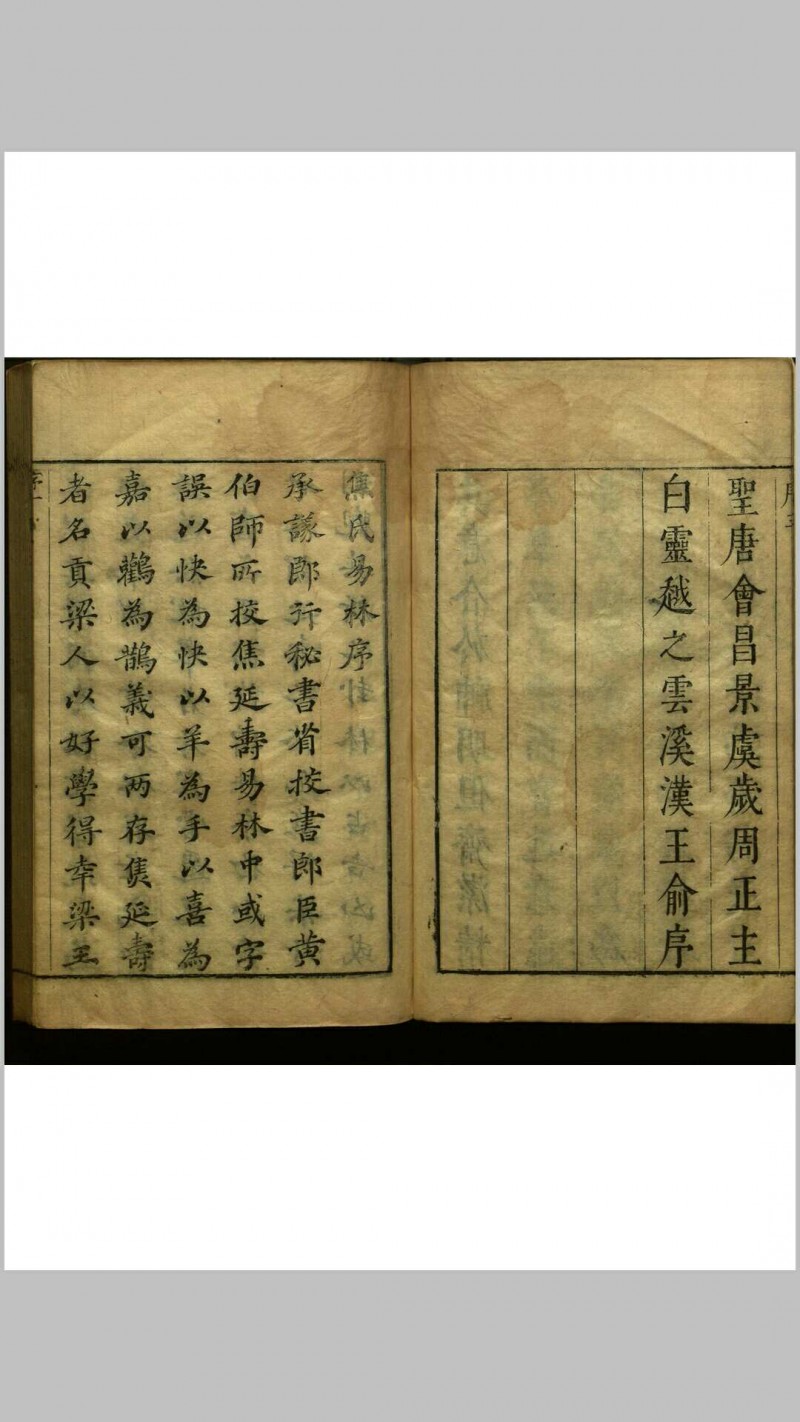 聖唐會昌景虞歲周正主
白靈越之雲溪漢王俞序
焦氏易林序
承議郎行秘書省挍書郎臣黄
伯師所挍焦延壽易林中或字
誤以快為快以羊為手以喜為
嘉以鸛為鵲義可两存焦延壽
者名貢梁人以好學得幸梁王